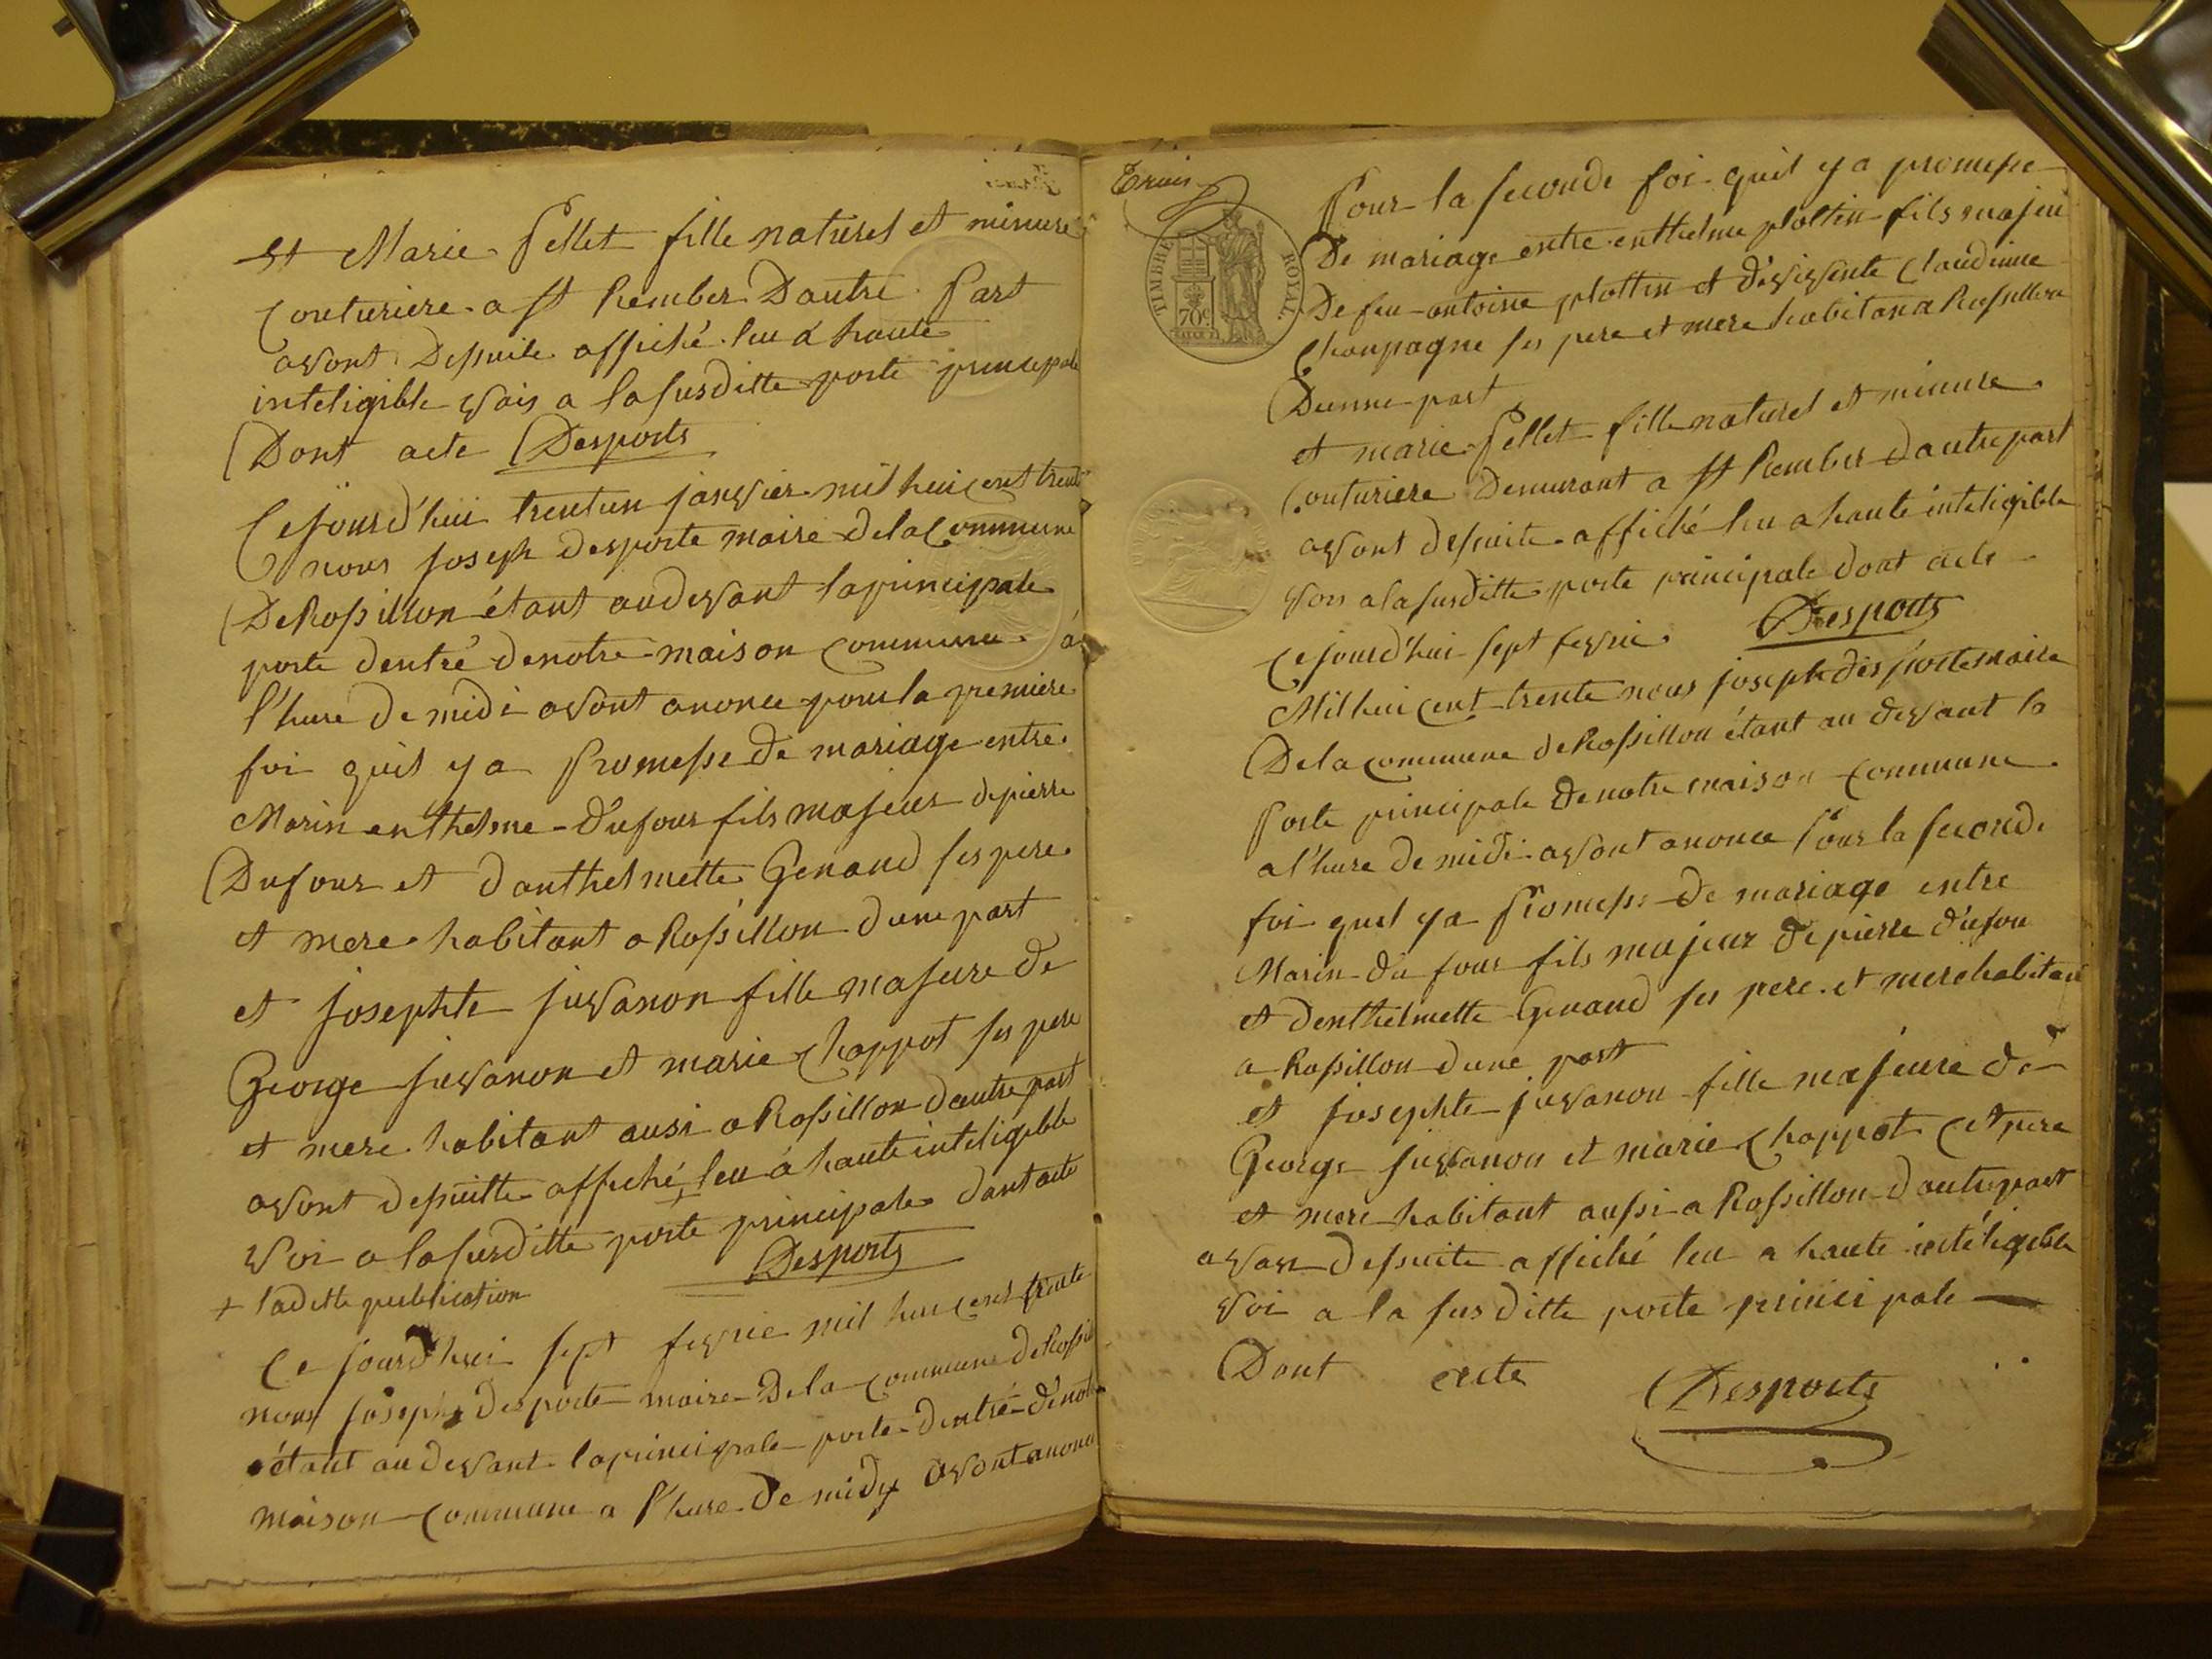 et Marie Pellet fille naturel et minure
Couturiere a St Rember Dautre Part
avont Desuite affiché leu á haute
inteligible vois a la susditte porte principale
Dont acte Desports
Cejourd'hui trentun janvier mil hui cent trente
nous joseph desporte maire de la Commune
De Rossillon étant audevant la principale
porte dentré denotre maison commune á
l'hure de midi avont anonce pour la premiere
foi quil ya Promesse de mariage entre
Marin enthelme Dufour fils majeur de pierre
Dufour et danthelmette Genaud ses pere
et mere habitant a Rossillon dune part
et josephte juvanon fille majeure de
George juvanon et marie Chappot ses pere
et mere habitant ausi a Rossillon dautre part
avont desuitte affiché + leu á haute inteligible
voi a la susditte porte principale dont acte
Desports
+ ladette publication
Ce jourd'hui sept fevrie mil hui cent trente
nous joseph desporte maire De la commune de Rossil
étant au devant la principale porte dentré de not
maison commune a l'hure de midy avont anonce
Trois
TIMBRE ROYAL
70c
Pour la seconde foi quil ya promesse
De mariage entre enthelme plottin fils majeu
De feu antoine plottin et de vivente Claudinne
Chanpagne ses pere et mere habitan a Rossillon
Dunne part
et marie Pellet fille naturel et minure
Couturiere Demurant a St Rember dautre part
avont desuite affiché leu a haute inteligible
vois a la susditte porte principale dont acte
Desports
Cejourd'hui sept fevrie
Mil hui cent trente nous joseph desporte maire
De la commune de Rossillon étant au devant la
Porte principale denotre maison commune
a l'hure de midi avont anonce Pour la seconde
foi quil ya Promesse de mariage entre
Marin du four fils majeur de pierre dufou
et denthelmette Genaud ses pere et mere habitan
a Rossillon dune part
et josephte juvanon fille majeure de
George juvanon et marie Chappot cet pere
et mere habitant aussi a Rossillon dautre part
avan desuite affiché leu a haute inteligible
voi a la susditte porte principale
Dont acte Desports